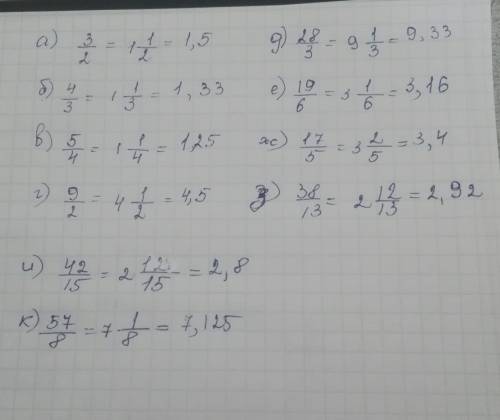 а) 3/2 = 1 1/2 = 1,5
б) 4/3 = 1 1/3 = 1,33
в) 5/4 = 1 1/4 = 1,25
г) 9/2 = 4 1/2 = 4,5
д) 28/3 = 9 1/3 = 9,33
е) 19/6 = 3 1/6 = 3,16
ж) 17/5 = 3 2/5 = 3,4
з) 38/13 = 2 12/13 = 2,92
и) 42/15 = 2 12/15 = 2,8
к) 57/8 = 7 1/8 = 7,125